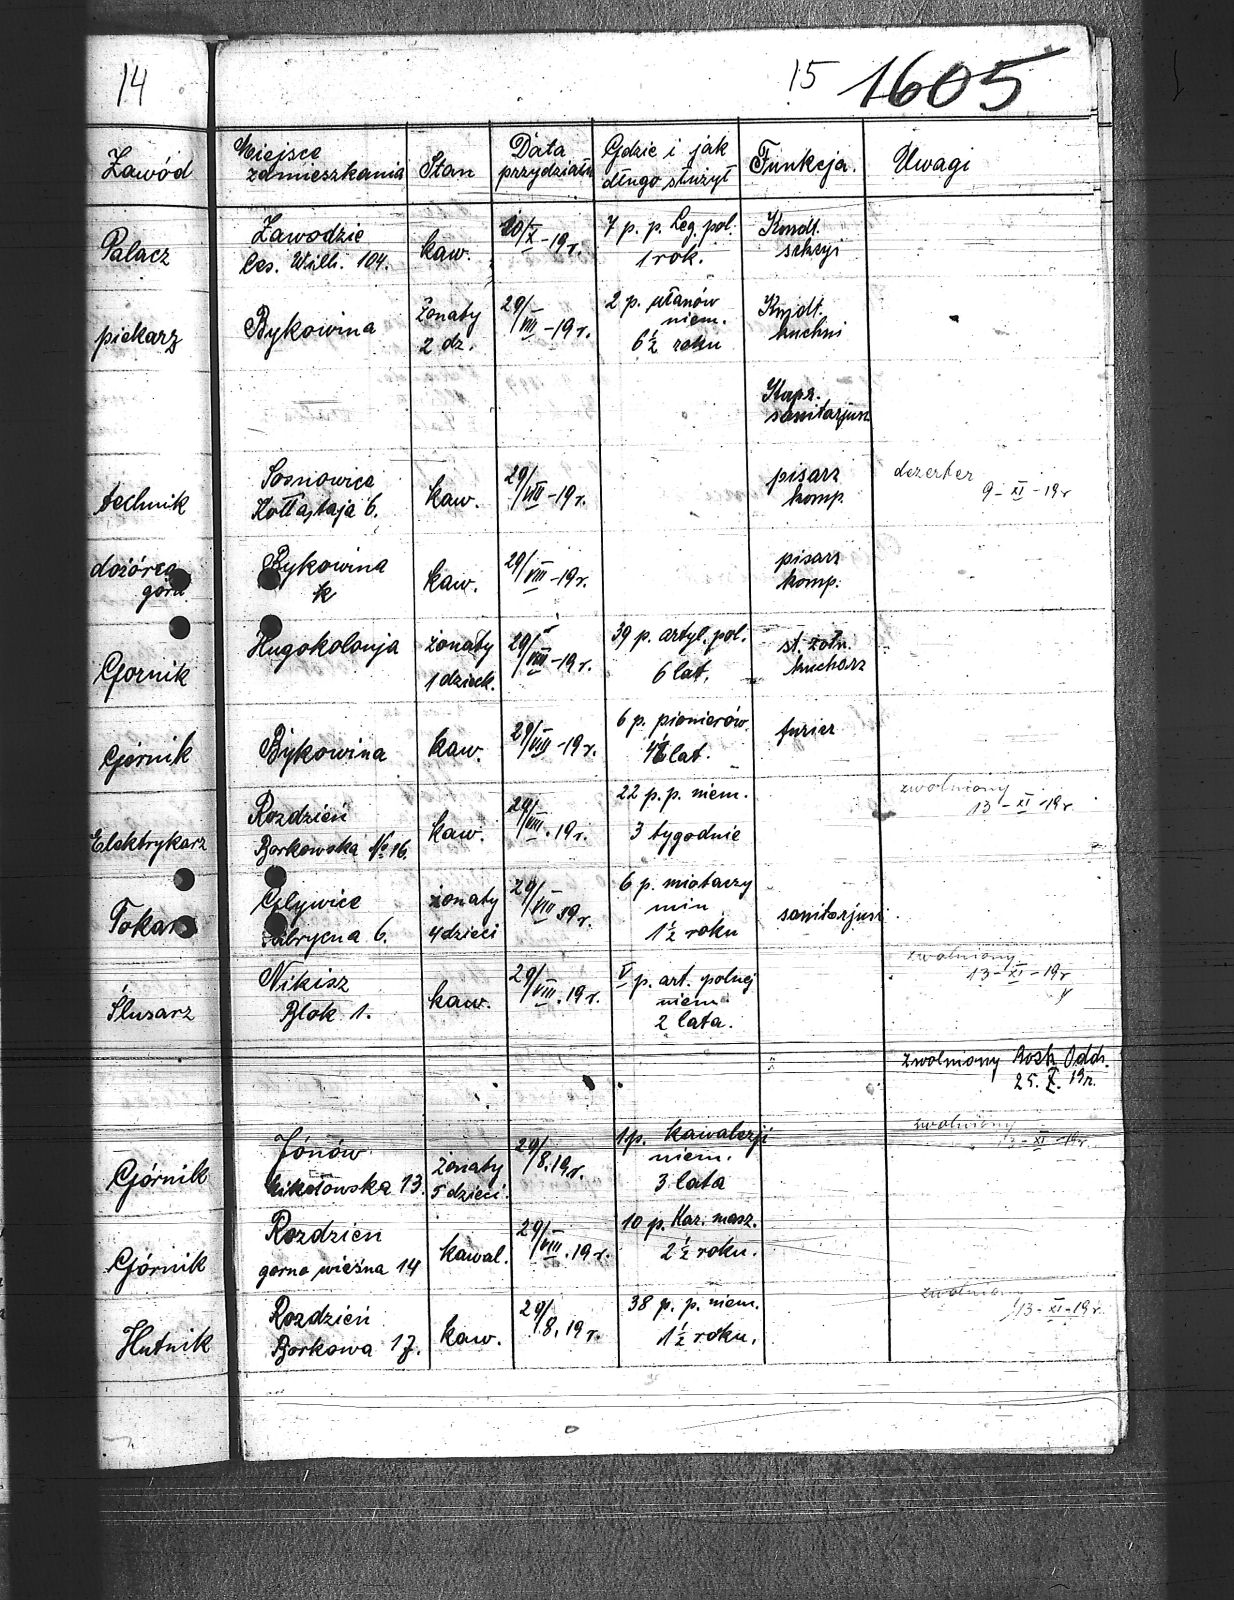 14
15 1605
Zawód
Miejsce
zamieszkania
Stan
Data
przydziału
Gdzie i jak
długo służył
Funkcja.
Uwagi
Palacz
Zawodzie
Ces. Wilh. 104.
kaw.
10/X-19r.
7 p. p. Leg. pol.
1 rok.
Kmdt.
sekcyi
piekarz
Bykowina
Żonaty
2 dz.
29/VIII-19r.
2 p. ułanów
niem.
6½ roku
Kmdt.
kuchni
Kapr.
sanitarjusz
technik
Sosnowice
Kołłątaja 6.
kaw.
29/VIII-19r.
pisarz
komp.
dezerter
9-XI-19r
dozórca
górn.
Bykowina
kaw.
29/VIII-19r.
pisarz
komp.
Gornik
Hugokolonja
żonaty
1 dzieck.
29/VIII-19r.
39 p. artyl. pol.
6 lat.
st. żołn.
kucharz
Górnik
Bykowina
kaw.
29/VIII-19r.
6 p. pionierów
lat.
furier
Elektrykarz
Rozdzień
Borkowska No 16.
kaw.
29/VIII.19r.
22 p.p. niem.
3 tygodnie
zwolniony
13-XI-19r
Tokarz
Glywice
Fabrycna 6.
żonaty
4 dzieci
29/VIII.19r.
6 p. miotaczy
min
1½ roku
sanitarjusz
Ślusarz
Nikisz
Blok 1.
kaw.
29/VIII.19r.
V p. art. polnej
niem
2 lata.
zwolniony
13-XI-19r
zwolniony Rozk. Odd.
25.X.19r.
Górnik
Jónów
Mikołowska 13.
żonaty
5 dzieci.
29/8.19r.
1 p. kawalerji
niem.
3 lata
zwolniony
13-XI-19r.
Górnik
Rozdzien
gorno wieśna 14
kawal.
29/VIII.19r.
10 p. Kar. masz.
2½ roku.
Hutnik
Rozdzień
Borkowa 17.
kaw.
29/8.19r.
38 p. p. niem.
1½ roku.
zwolnio.
13-XI-19r.